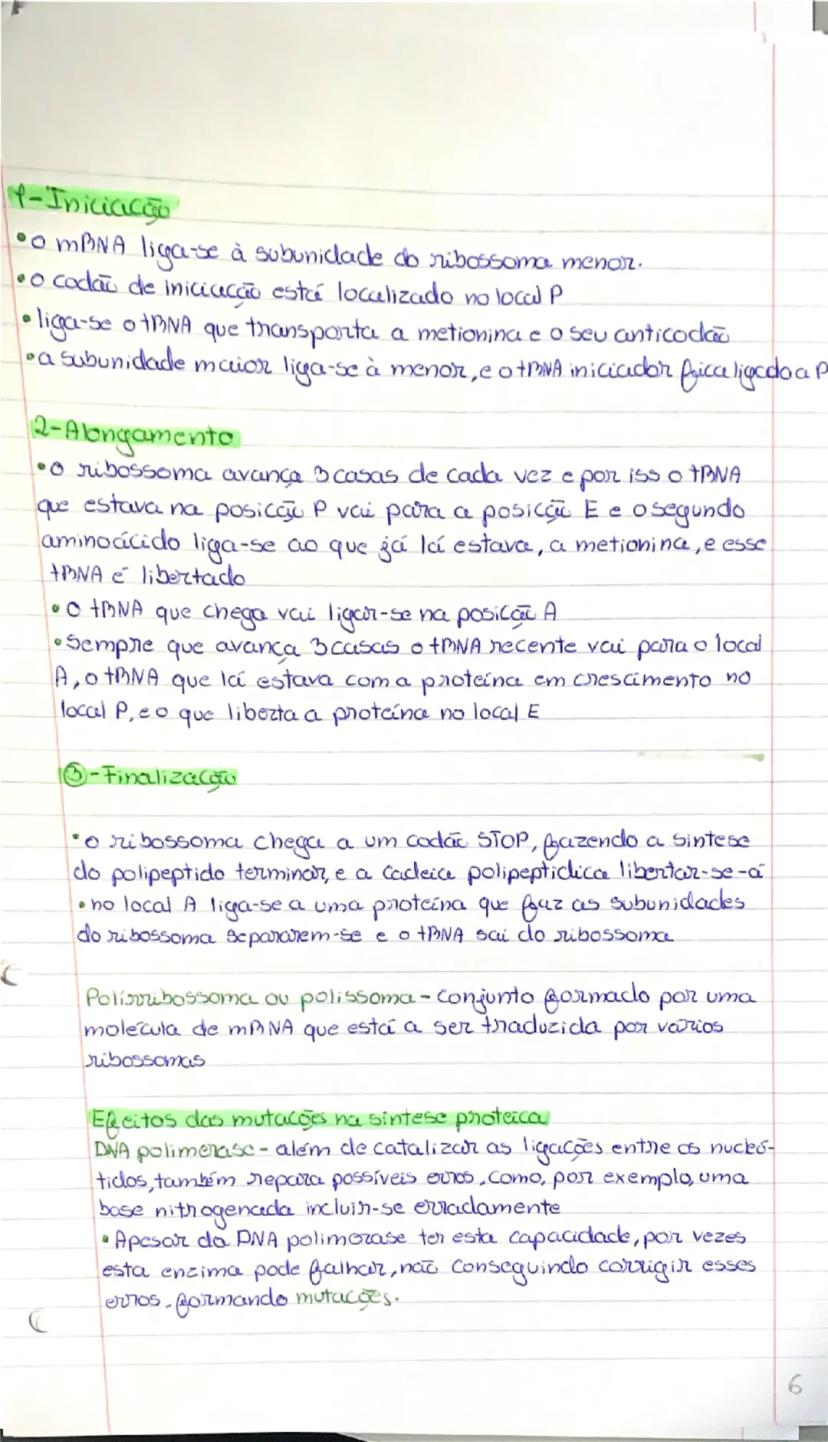 1-Iniciação
•o mRNA liga-se à subunidade do ribossoma menor.
•o codão de iniciação está localizado no local P
•liga-se o tRNA que transporta a metionina e o seu anticodão
•a subunidade maior liga-se à menor, e o tRNA iniciador fica ligado a P
2-Alongamento
•o ribossoma avança 3 casas de cada vez e por isso o tRNA
que estava na posição P vai para a posição E e o segundo
aminoácido liga-se ao que já lá estava, a metionina, e esse
tRNA é libertado
•O tRNA que chega vai ligar-se na posição A
•Sempre que avança 3 casas o tRNA recente vai para o local
A, o tRNA que lá estava com a proteína em crescimento no
local P, e o que liberta a proteína no local E
③-Finalização
•o ribossoma chega a um codão STOP, fazendo a sintese
do polipeptido terminar, e a cadeia polipeptidica libertar-se-á
•no local A liga-se a uma proteína que faz as subunidades
do ribossoma separarem-se e o tRNA sai do ribossoma
Polirribossoma ou polissoma - conjunto formado por uma
molécula de mRNA que está a ser traduzida por vários
ribossomas
Efeitos das mutações na sintese proteica
DNA polimerase - além de catalizar as ligações entre os nucleó-
tidos, também repara possíveis erros, como, por exemplo, uma
base nitrogenada incluir-se erradamente
•Apesar da DNA polimerase ter esta capacidade, por vezes
esta enzima pode falhar, não conseguindo corrigir esses
erros, formando mutações.
6